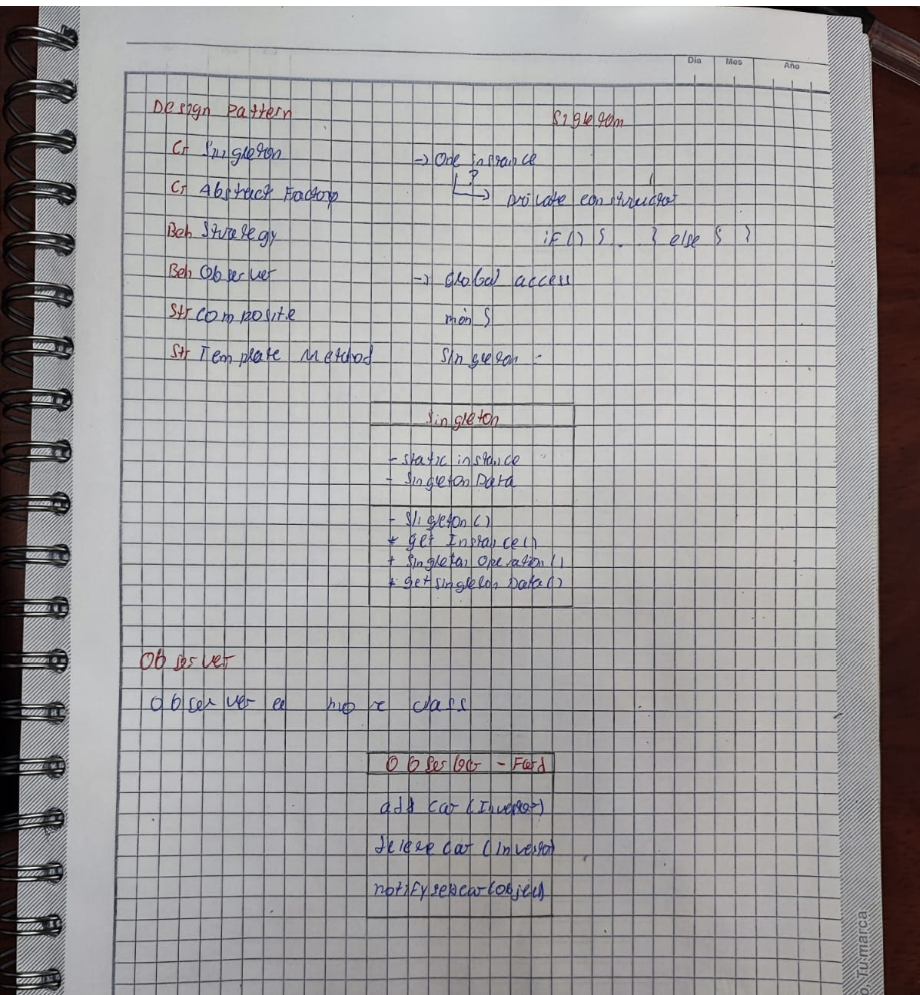 Dia Mes Año
Design Pattern
Cr Singleton
Cr Abstract Factory
Beh Strategy
Beh Observer
Str Composite
Str Template Method
Sigleton
-> One instance
?
private constructor
if() { .. } else { }
-> Global access
Singleton
Singleton
- static instance
- Singleton Data
- Sligleton()
+ get Instance()
+ Singleton Operation()
+ get singleton Data()
Observer
observer class
add car (Inversor)
delete car (Inversor)
notify car (object)
Tu marca